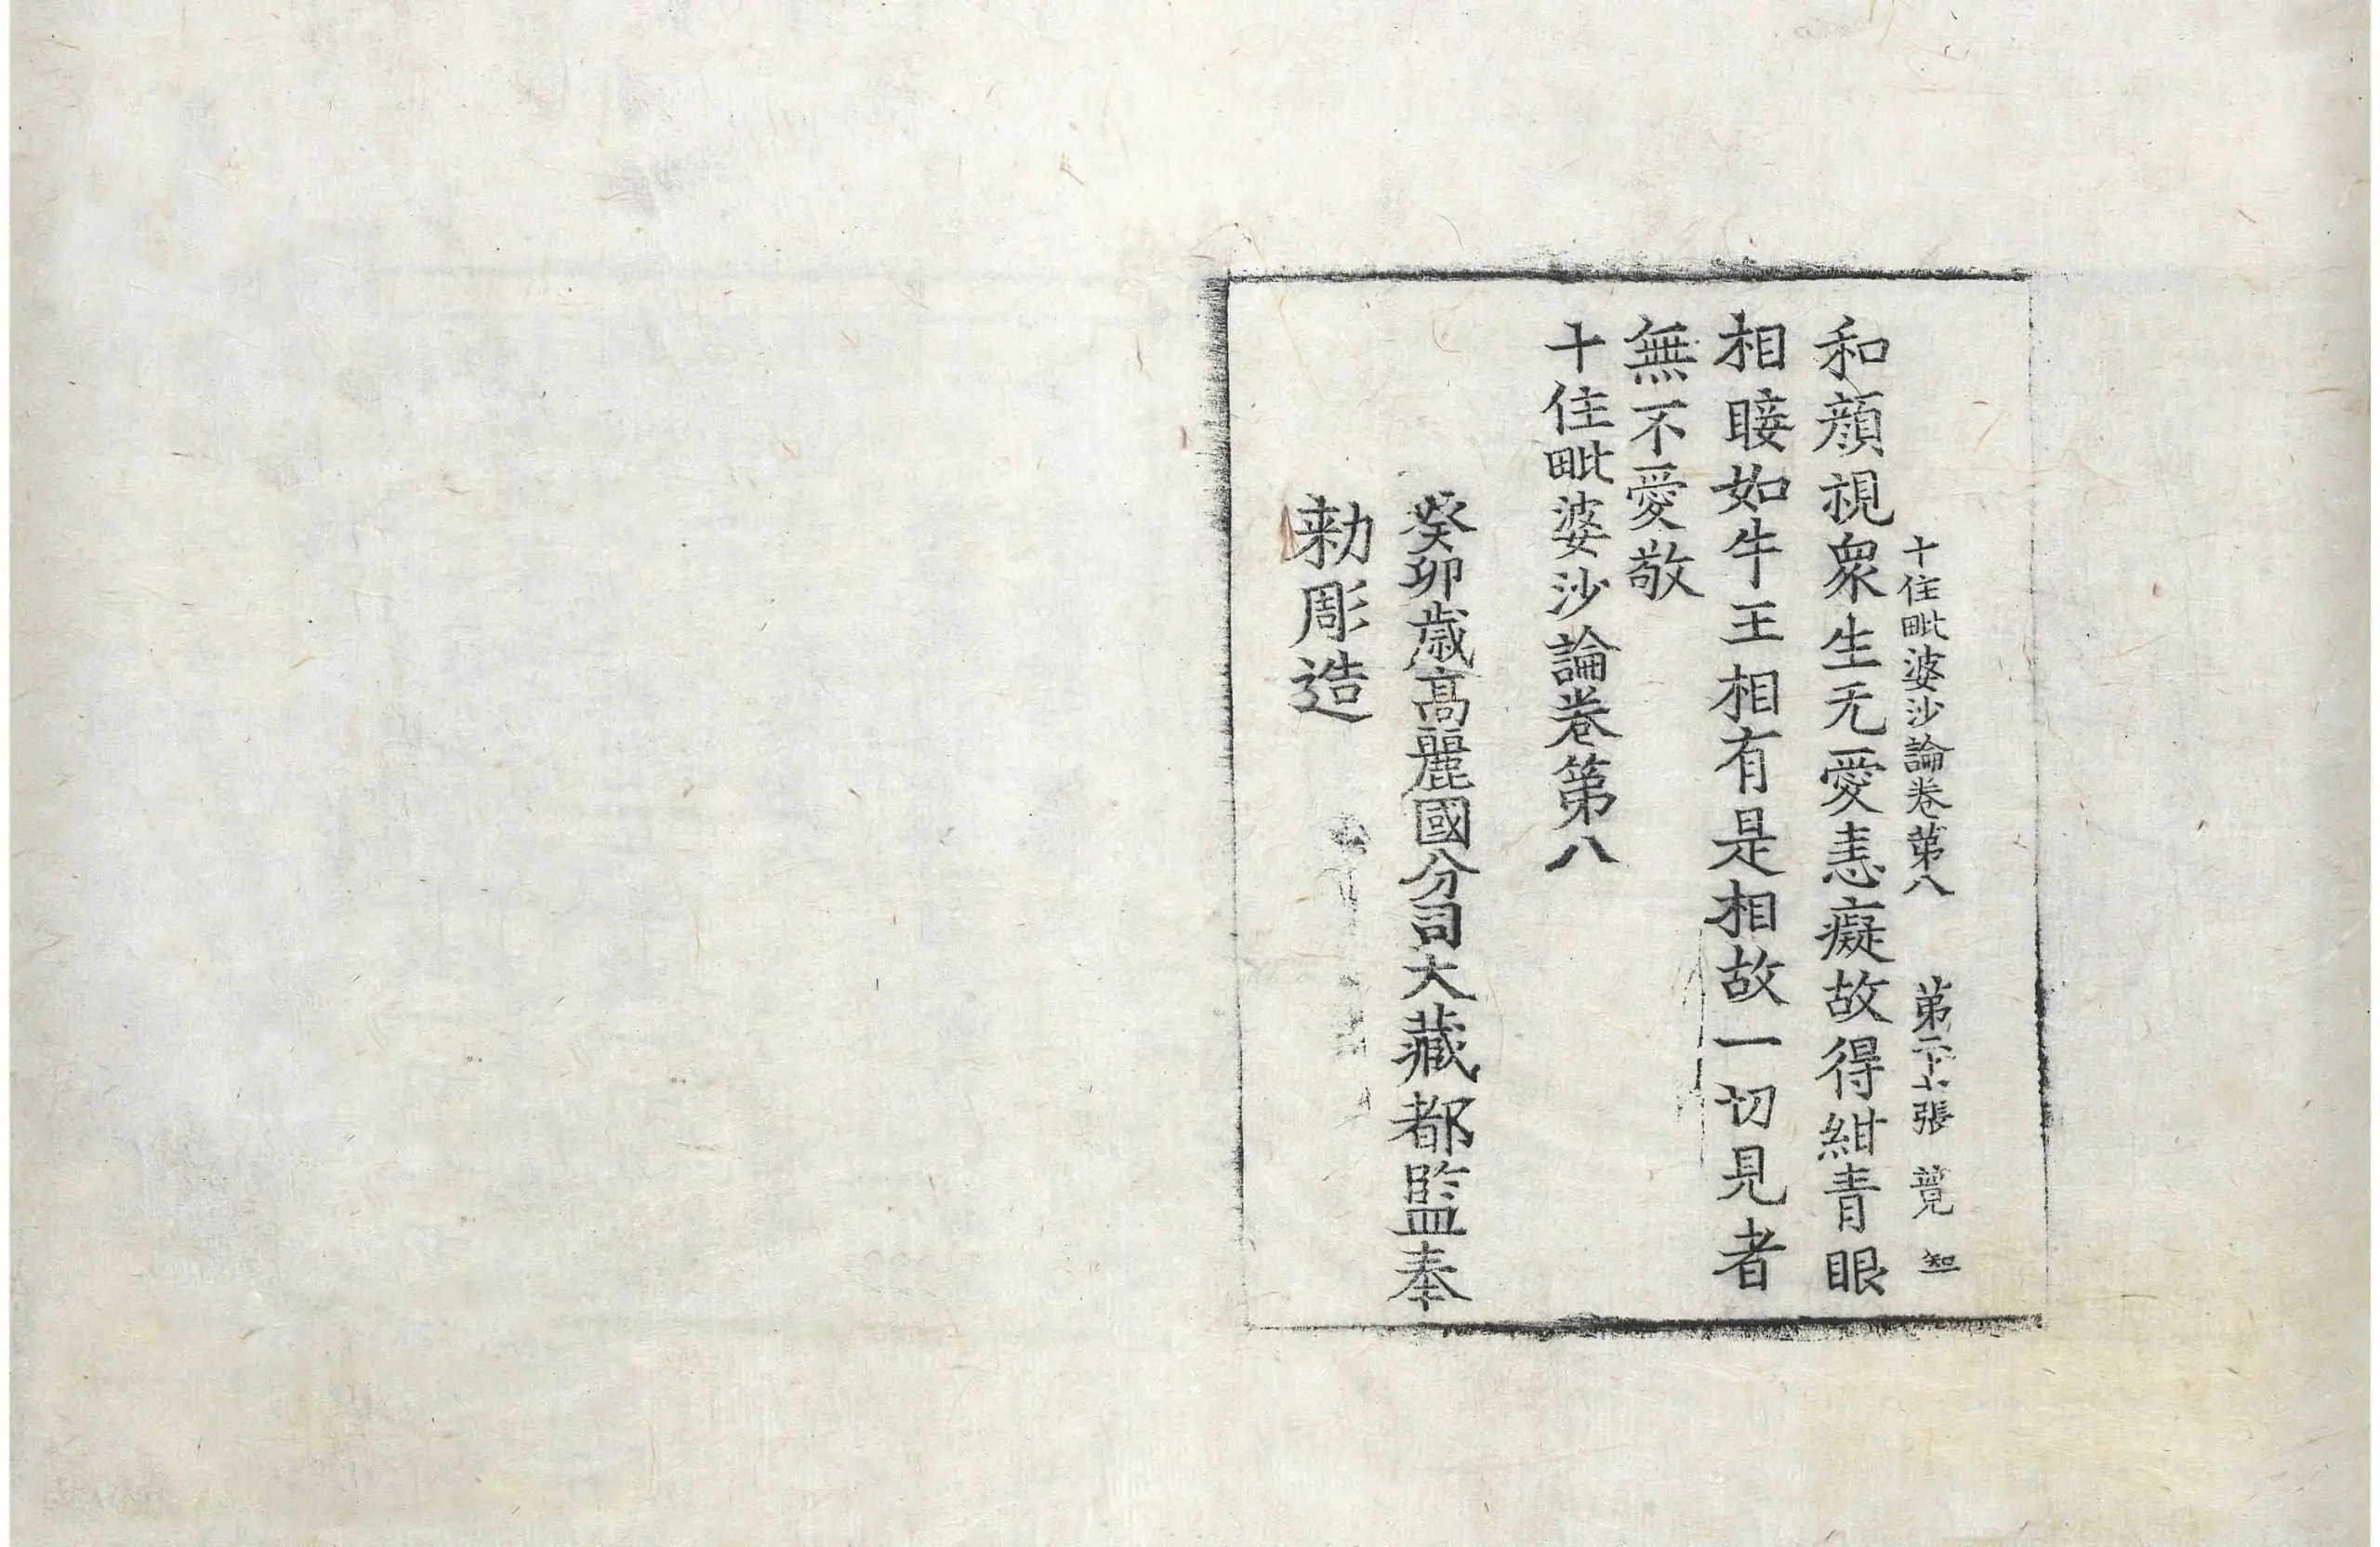 十住毗婆沙論卷第八　第二十七張　競　知
和顔視衆生无愛恚癡故得紺青眼
相睫如牛王相有是相故一切見者
無不愛敬
十住毗婆沙論卷第八
癸卯歳高麗國分司大藏都監奉
勑彫造